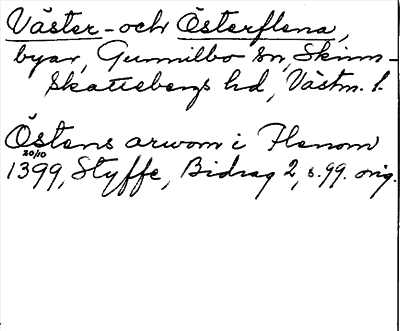 Väster- och Österflena,
byar, Gunnilbo sn, Skinn-
Skattebergs hd, Västm. l.
Östens arwom i Flenom
20/10
1399, Styffe, Bidrag 2, s. 99. orig.